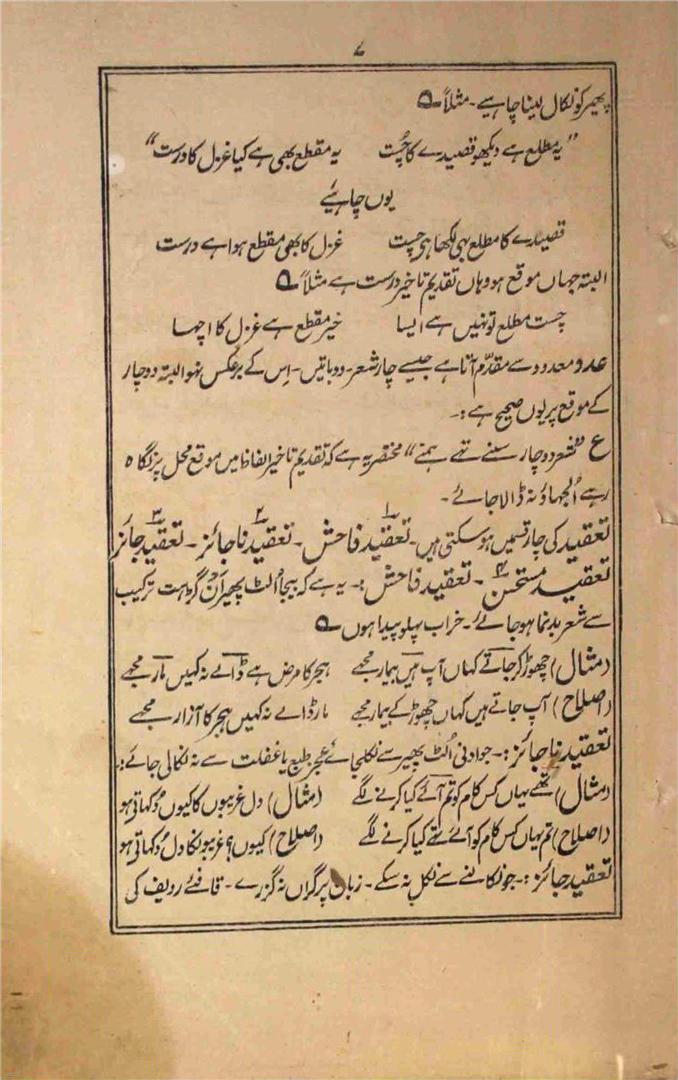 ۷
پھیر کو نکال لینا چاہیے۔ مثلاً ؎
”یہ مطلع ہے دیکھو قصیدے کا چُست    یہ مقطع بھی ہے کیا غزل کا درست“
یوں چاہئیے
قصیدے کا مطلع یہی لکھا ہی چست    غزل کا بھی مقطع ہوا ہے درست
البتہ جہاں موقع ہو وہاں تقدیم تاخیر درست ہے مثلاً ؎
چست مطلع تو نہیں ہے ایسا    خیر مقطع ہے غزل کا اچھا
عدد معدود سے مقدّم آتا ہے جیسے چار شعر۔ دو باتیں۔ اِس کے برعکس نہو البتہ دو چار
کے موقع پر یوں صحیح ہے :۔
ع ”شعر دو چار سنے تھے ہمنے“ مختصر یہ ہے کہ تقدیم تاخیر الفاظ میں موقع محل پر نگاہ
رہے اُلجھاؤ نہ ڈالا جائے۔
تعقید کی چار قسمیں ہو سکتی ہیں۔ ۱ تعقید فاحش۔ ۲ تعقید ناجائز۔ ۳ تعقید جائز
۴ تعقید مستحسن۔ تعقید فاحش :۔ یہ ہے کہ بیجا اُلٹ پھیر اَن گڑھت ترکیب
سے شعر بدنما ہو جائے۔ خراب پہلو پیدا ہوں ؎
(مثال) چھوڑ کر جاتے کہاں آپ ہیں بیمار مجھے    ہجر کا مرض ہے ڈالے نہ کہیں مار مجھے
(اصلاح) آپ جاتے ہیں کہاں چھوڑ کے بیمار مجھے    مار ڈالے نہ کہیں ہجر کا آزار مجھے
تعقید ناجائز :۔ جو ادنی اُلٹ پھیر سے نکلجائے عجز طبع یا غفلت سے نہ نکالی جائے :۔
(مثال) تھے یہاں کس کام کو تم آئے کیا کرنے لگے    (مثال) دل غریبوں کا کیوں دُکھاتی ہو
(اصلاح) تم یہاں کس کام کو آئے تھے کیا کرنے لگے    (اصلاح) کیوں؟ غریبونکا دل دُکھاتی ہو
تعقید جائز :۔ جو نکالنے سے نکل نہ سکے۔ زبان پر گراں نہ گزرے۔ قافئے ردیف کی